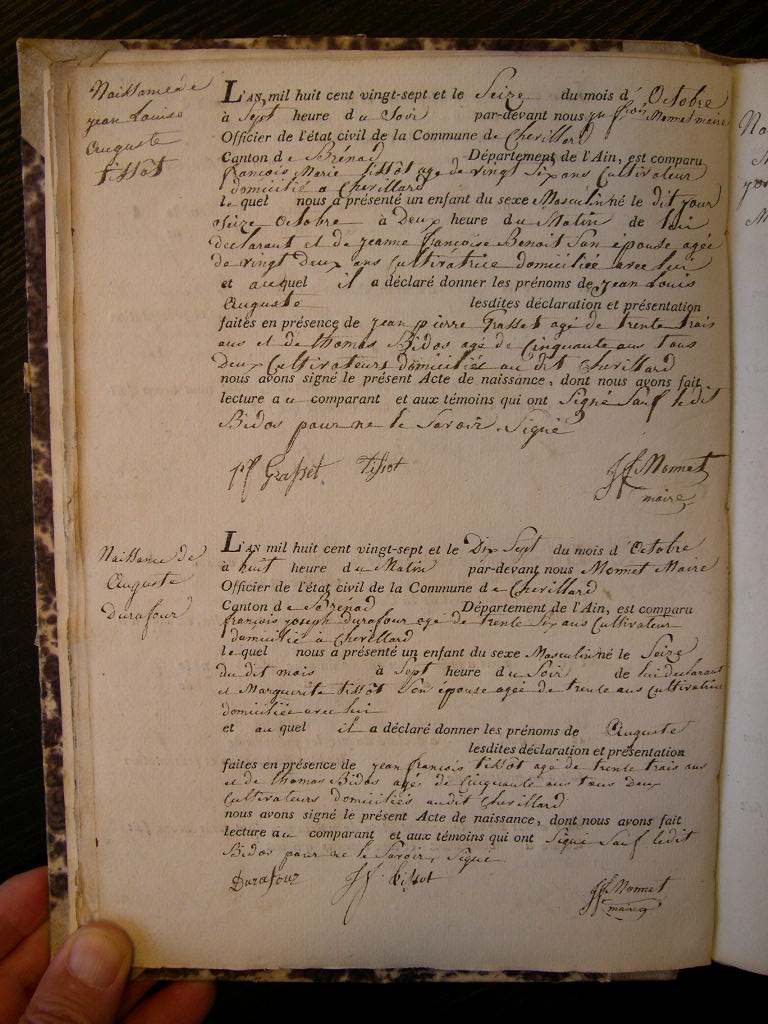 Naissance de
jean Louis
Auguste
tissot
L'AN mil huit cent vingt-sept et le Seize du mois d'Octobre
à Sept heure du Soir par-devant nous Monnet maire
Officier de l'état civil de la Commune de Chevillard
Canton de Brénod Département de l'Ain, est comparu
françois Marie tissot age de vingt Six ans Cultivateur
domicilié a Chevillard
lequel nous a présenté un enfant du sexe Masculin né le dit jour
seize Octobre à Deux heure du Matin de lui
declarant et de jeanne françoise Benoit Son épouse agée
de vingt deux ans Cultivatrice domiciliée avec lui
et auquel il a déclaré donner les prénoms de jean Louis
Auguste lesdites déclaration et présentation
faites en présence de jean pierre Grasset agé de trente trois
ans et de thomas Bidos agé de Cinquante ans tous
Deux Cultivateurs domiciliés au dit Chevillard
nous avons signé le présent Acte de naissance, dont nous avons fait
lecture au comparant et aux témoins qui ont Signé Sauf le dit
Bidos pour ne le Savoir Signé
Grasset tissot Monnet
maire
Naissance de
Auguste
Durafour
L'AN mil huit cent vingt-sept et le Dix Sept du mois d'Octobre
à huit heure du Matin par-devant nous Monnet Maire
Officier de l'état civil de la Commune de Chevillard
Canton de Brénod Département de l'Ain, est comparu
françois joseph durafour agé de trente Six ans Cultivateur
domicilié à Chevillard
lequel nous a présenté un enfant du sexe Masculin né le Seize
du dit mois à Sept heure du Soir de lui declarant
et Marguerite tissot Son épouse agée de trente ans Cultivatrice
domiciliée avec lui
et auquel il a déclaré donner les prénoms de Auguste
lesdites déclaration et présentation
faites en présence de jean françois tissot agé de trente trois ans
et de thomas Bidos agé de Cinquante ans tous deux
Cultivateurs domiciliés audit Chevillard
nous avons signé le présent Acte de naissance, dont nous avons fait
lecture au comparant et aux témoins qui ont Signé Sauf ledit
Bidos pour ne le Savoir Signé
Durafour Jf. tissot Monnet
maire